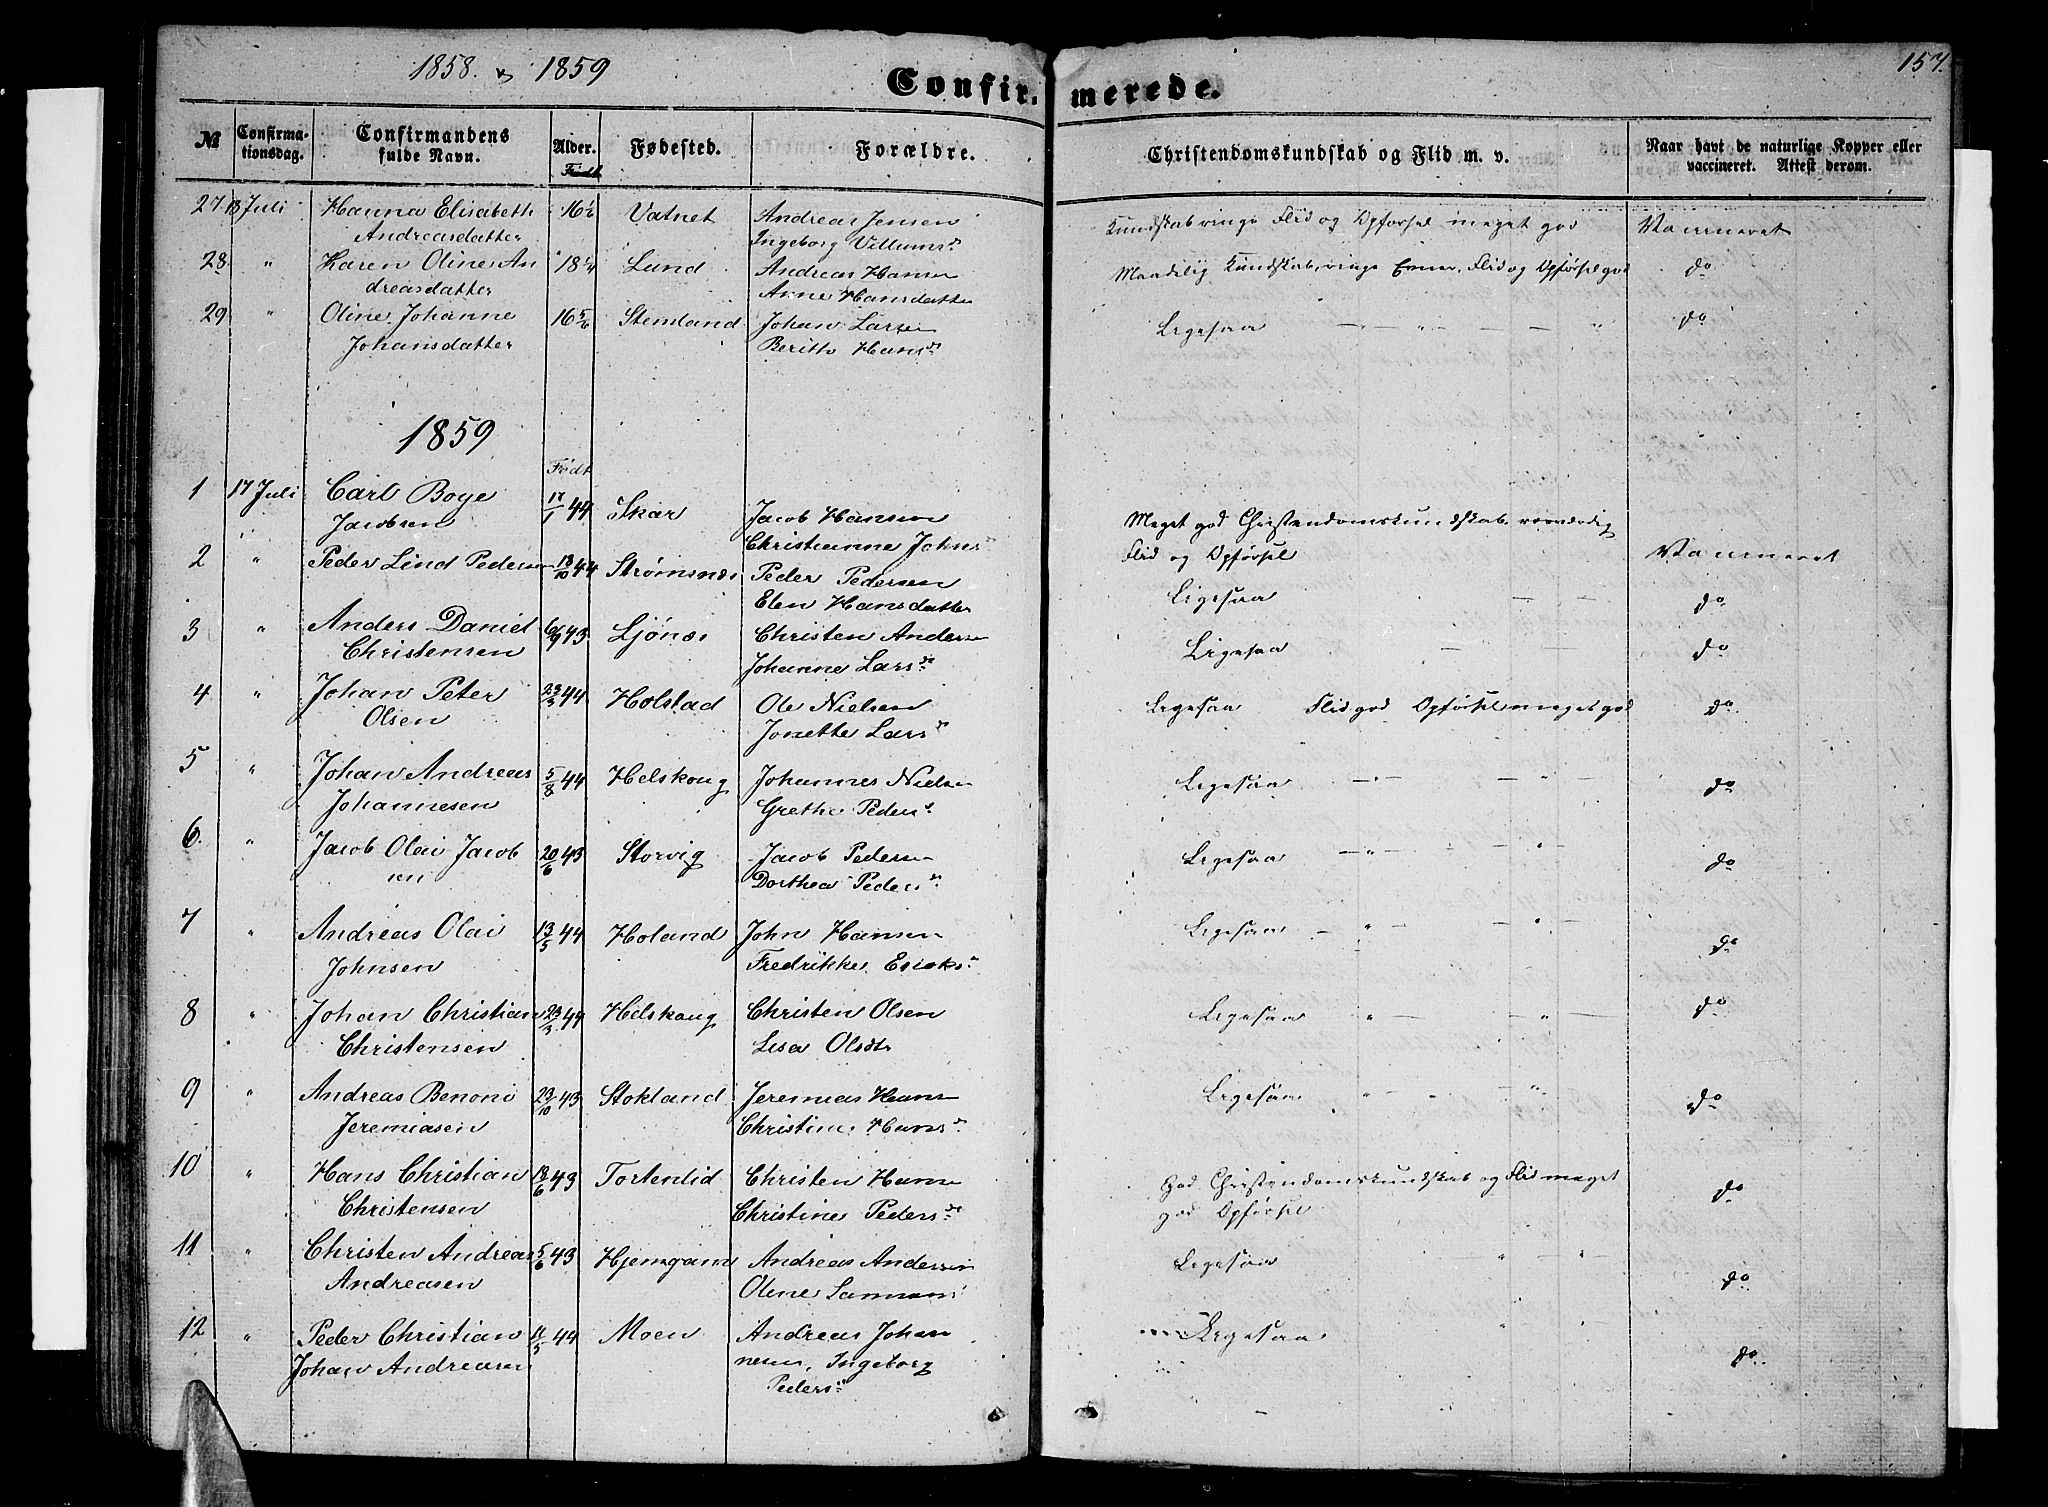 1858. & 1859
157.
Confirmerede.
№ Confirmationsdag. Confirmandens fulde Navn. Alder. Fødested. Forældre. Christendomskundskab og Flid m. v. Naar havt de naturlige Kopper eller vaccineret. Attest derom.
Født
27. 18 Juli Hanna Elisabeth 16½ Vatnet Andreas Jensen Kundskab ringe Flid og Opførsel meget god Vaccineret
Andreasdatter Ingeborg Villumsd
28. " Karen Oline An 18¼ Lund Andreas Hansen Maadelig Kundskab, ringe Evner, Flid og Opførsel god do
dreasdatter Anne Hansdatter
29 " Oline Johanne 16 5/6 Stemland Johan Larsen Ligesaa — " — " — — " do
Johansdatter Beritte Hansd
1859
Født
1 17 Juli Carl Boye 17/1 44 Skar Jacob Hansen Meget god Christendomskundskab
Jacobsen Christianne Johns Flid og Opførsel Vaccineret
2 " Peder Lind Pedersen 18/10 44 Strømsnæs Peder Pedersen Ligesaa — — do
Elen Hansdatter
3 " Anders Daniel 6/9 43 Ljønæs Christen Andersen Ligesaa — — do
Christensen Johanne Larsd
4 " Johan Peter 23/3 44 Holstad Ole Nielsen Ligesaa Flid god Opførsel meget god do
Olsen Jonette Larsd
5 " Johan Andreas 5/8 44 Helskoug Johannes Nielsen Ligesaa — " — — " — do
Johannesen Grethe Peders
6. " Jacob Olai Jacob 20/6 43 Storvig Jacob Pedersen Ligesaa — " — — " do
sen Dorthea Pedersd
7 " Andreas Olai 13/5 44 Holand John Hansen Ligesaa — " — — " — do
Johnsen Fredrikke Ericks
8 " Johan Christian 23/3 44 Helskoug Christen Olsen Ligesaa " — " — do
Christensen Lisa Olsdtr
9 " Andreas Benoni 23/10 43 Stokland Jeremias Hansen Ligesaa " — — " do
Jeremiasen Christine Hansd
10 " Hans Christian 18/6 43 Tortenlid Christen Hansen God Christendomskundskab og Flid meget do
Christensen Christine Pedersd god Opførsel
11 " Christen Andreas 5/6 43 Hjemgam Andreas Andersen Ligesaa " " do
Andreasen Oline
12 " Peder Christian 11/5 44 Moen Andreas Johan Ligesaa " do
Johan Andreasen nesen, Ingeborg
Peders